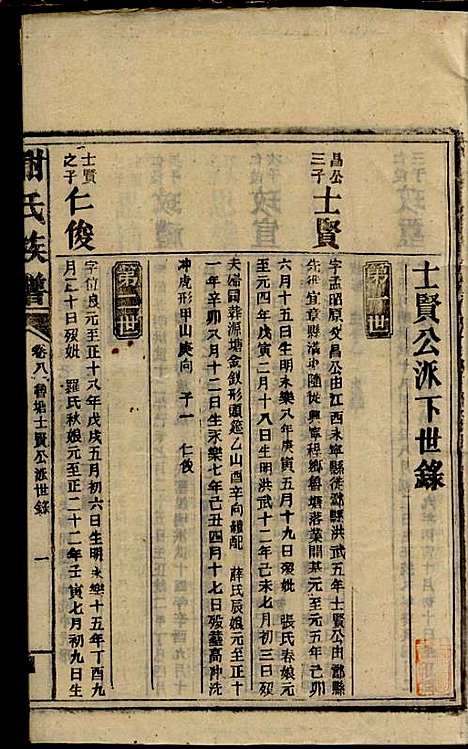 士賢公派下世錄
第一世
昌公
三子
士賢
字孟昭原文昌公由江西永寧縣徙酃縣洪武五年士賢公由酃縣
先徙宜章縣滿地隨從興寧程鄉魯塘落業開基元至元五年己卯
六月十五日生明永樂八年庚寅五月十九日歿妣 張氏春娘元
至元四年戊寅二月十八日生明洪武十二年己未七月初三日歿
夫婦同葬源塘金釵形頭鑑乙山酉辛向繼配 薛氏辰娘元至正十
一年辛卯八月十二日生永樂七年己丑四月十七日歿葬高冲洗
冲虎形甲山庚向 子一 仁俊
第二世
士賢
之子
仁俊
字位良元至正十八年戊戌五月初六日生明永樂十五年丁酉九
月二十日歿妣 羅氏秋娘元至正二十二年壬寅七月初九日生
謝氏族譜
卷八 魯塘士賢公派世錄
一